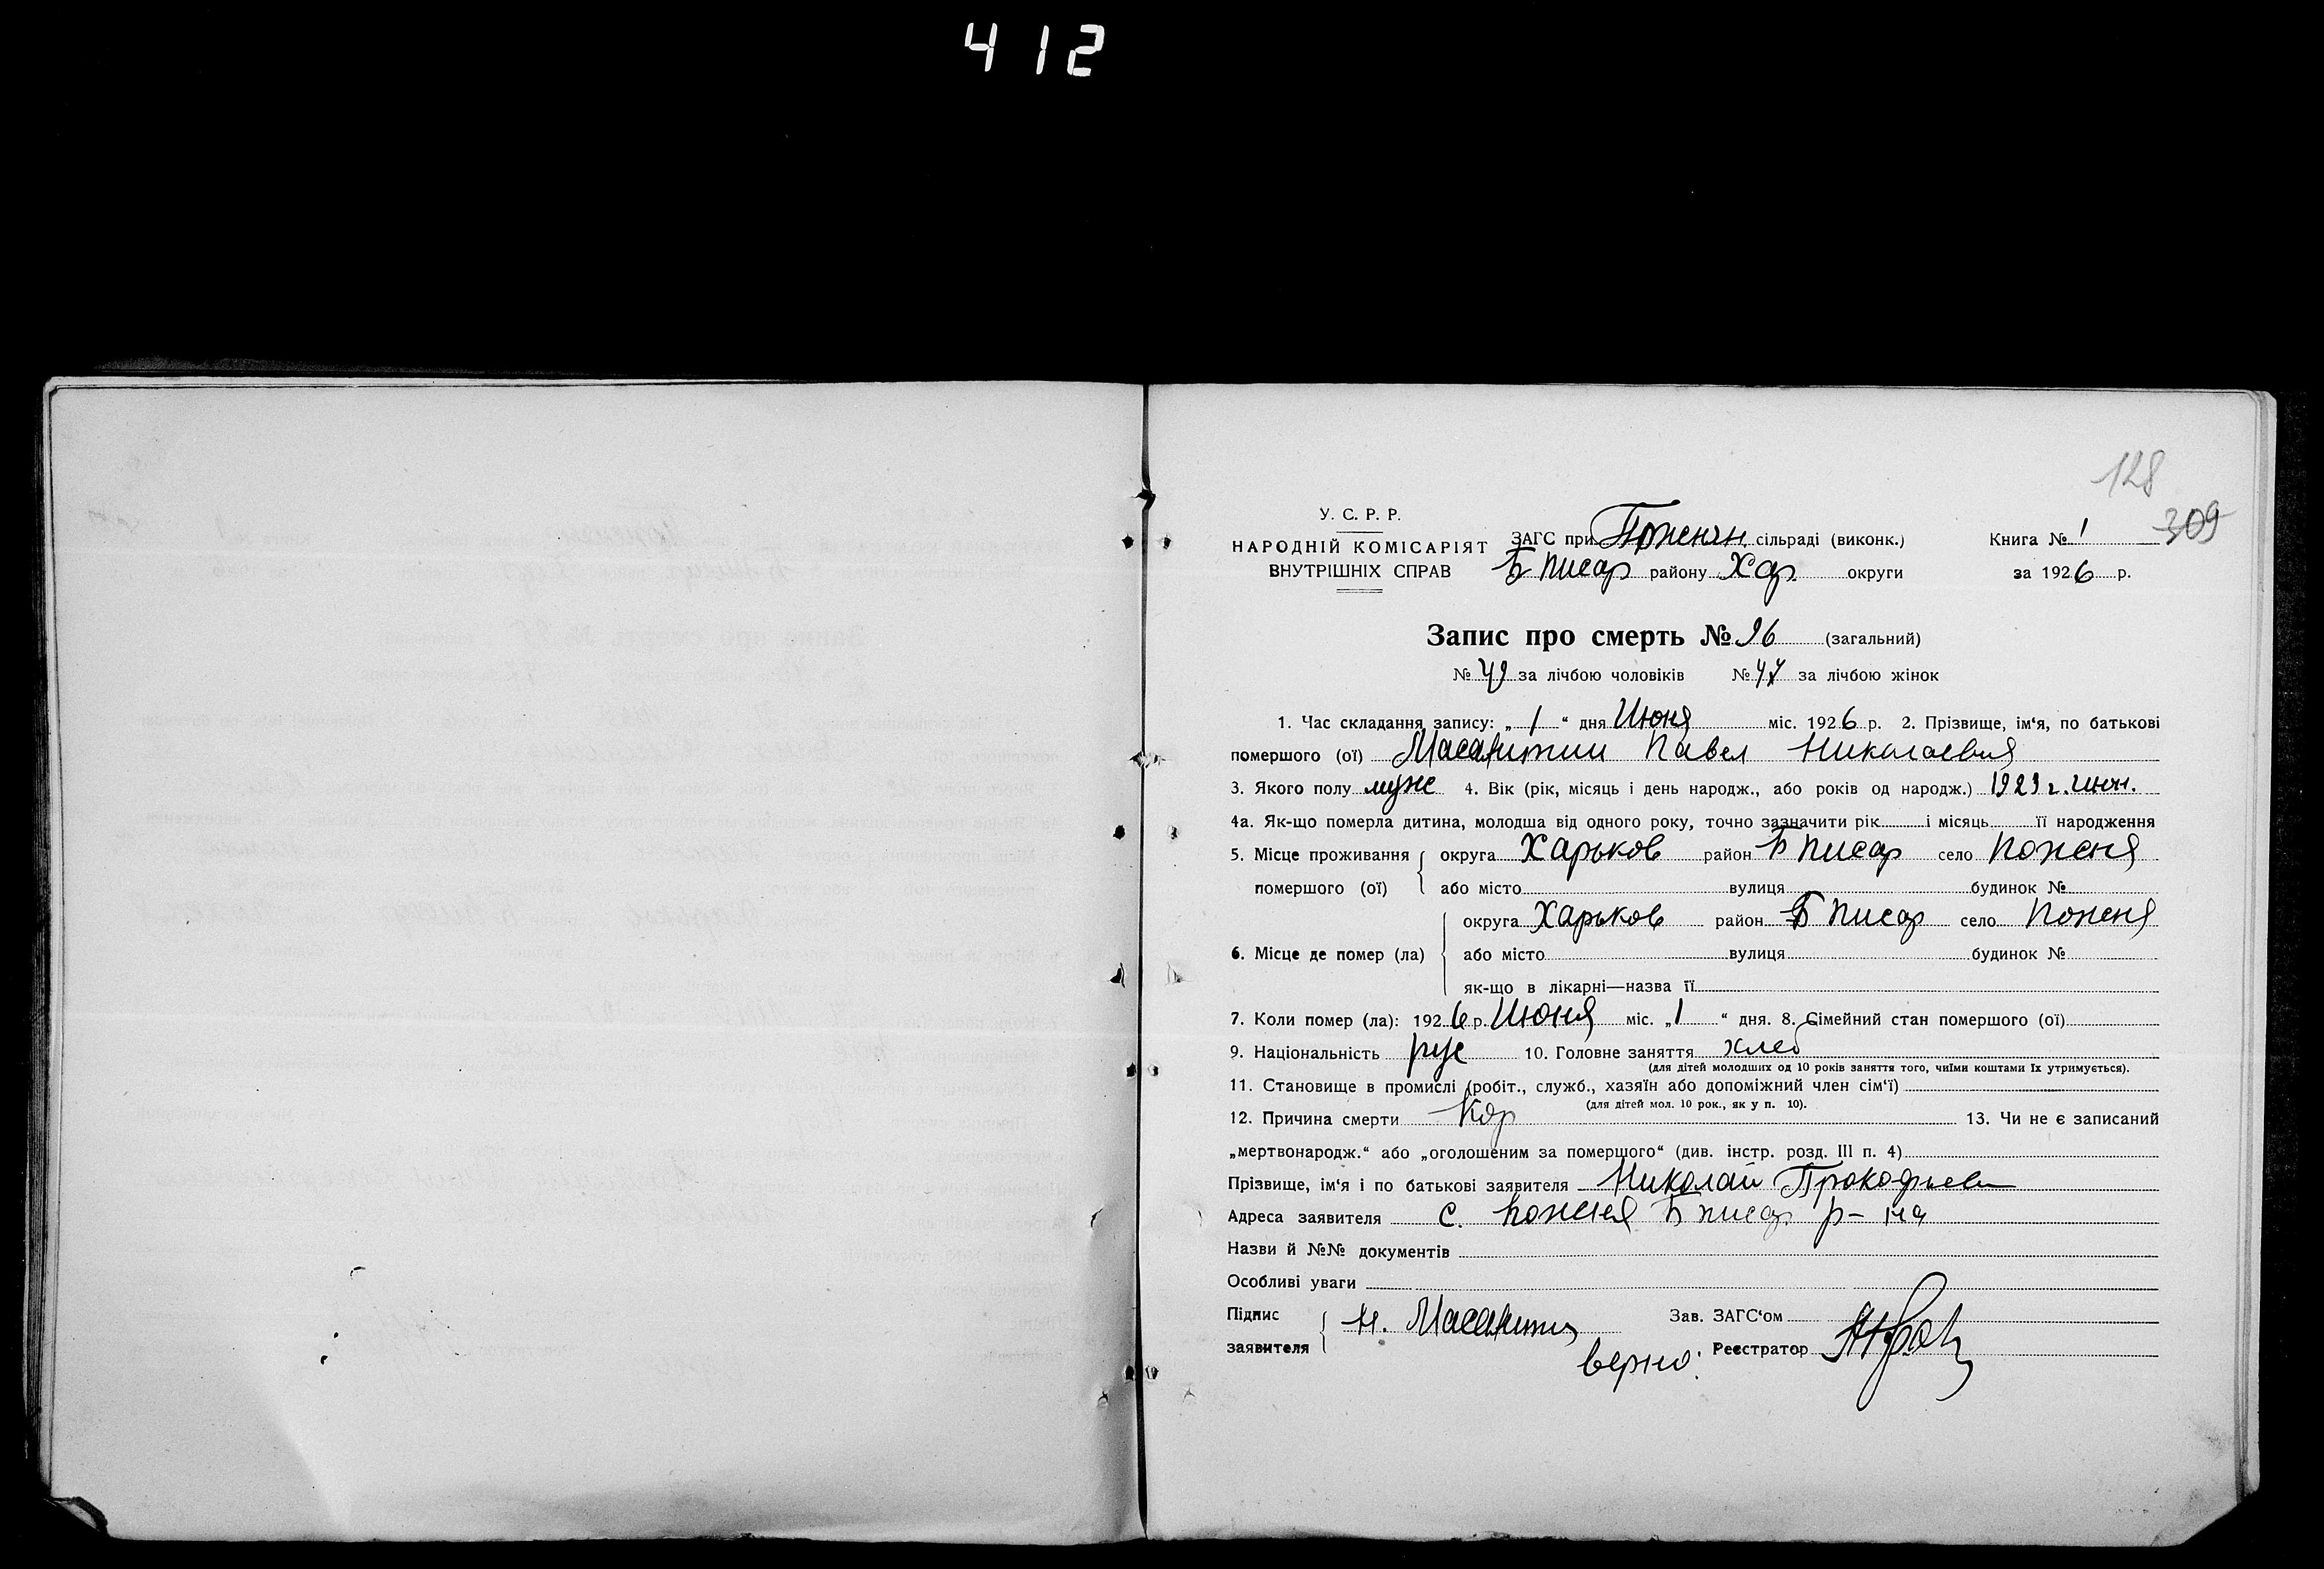 412
128
309
У. С. Р. Р.
НАРОДНІЙ КОМІСАРІЯТ
ВНУТРІШНІХ СПРАВ
ЗАГС при Поженян сільраді (виконк.) Книга № 1
Б Писар району Хар. округи за 1926 р.
Запис про смерть № 96 (загальний)
№ 49 за лічбою чоловіків № 47 за лічбою жінок
1. Час складання запису: „ 1 “ дня Июня міс. 1926 р. 2. Прізвище, ім‘я, по батькові
помершого (ої) Павел Николаевич
3. Якого полу муж 4. Вік (рік, місяць і день народж., або років од народж.) 1923 г. июн.
4а. Як-що померла дитина, молодша від одного року, точно зазначити рік і місяць її народження
5. Місце проживання округа Харьков район Б Писар село Поженя
помершого (ої) або місто вулиця будинок №
округа Харьков район Б Писар село Поженя
6. Місце де помер (ла) або місто вулиця будинок №
як-що в лікарні—назва її
7. Коли помер (ла): 1926 р. Июня міс. „ 1 “ дня. 8. Сімейний стан помершого (ої)
9. Національність рус 10. Головне заняття хлеб
(для дітей молодших од 10 років заняття того, чиїми коштами їх утримується).
11. Становище в промислі (робіт., служб., хазяїн або допоміжний член сім‘ї)
(для дітей мол. 10 рок., як у п. 10).
12. Причина смерти Кор 13. Чи не є записаний
„мертвонародж.“ або „оголошеним за помершого“ (див. інстр. розд. III п. 4)
Прізвище, ім‘я і по батькові заявителя Николай Прокофьев
Адреса заявителя с. Поженя Б писар р-на
Назви й №№ документів
Особливі уваги
Підпис
заявителя Н.
Зав. ЗАГС‘ом
верно: Реєстратор